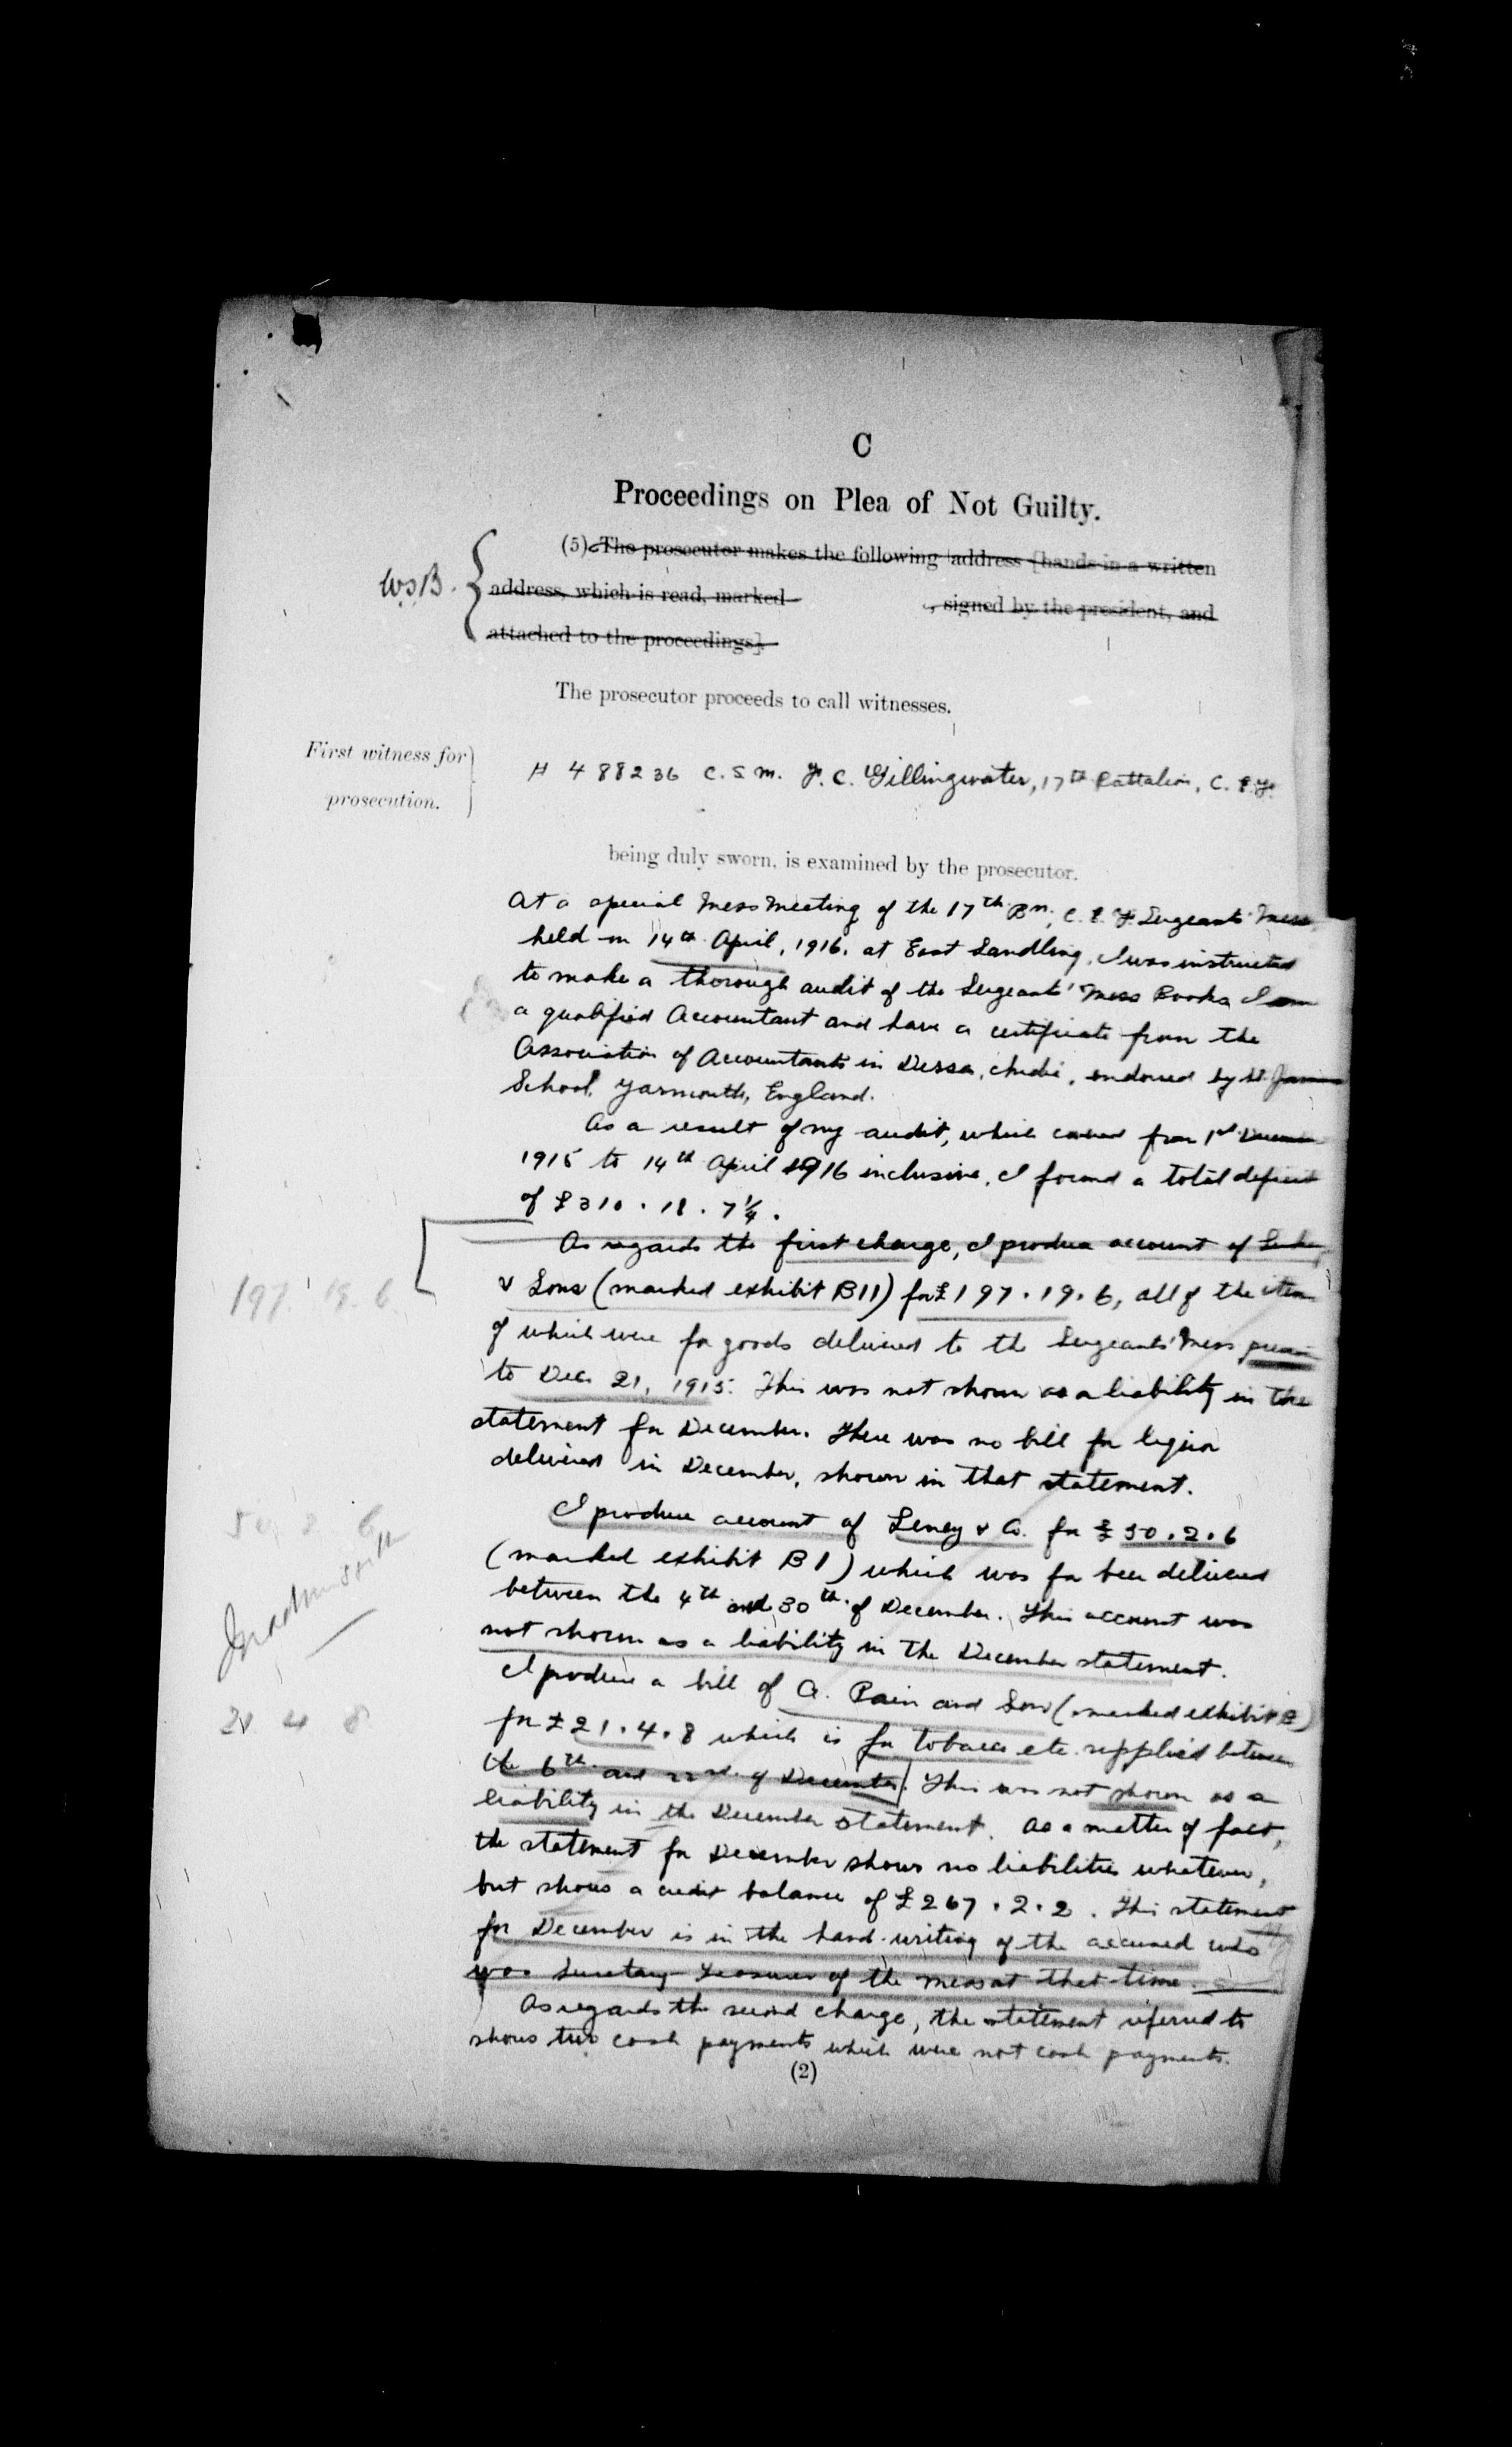 C
Proceedings on Plea of Not Guilty.
(5) The prosecutor makes the following address [hands in a written
W.S.B.
address, which is read, marked , signed by the president, and
attached to the proceedings].
The prosecutor proceeds to call witnesses.
First witness for
prosecution.
H 488236 C.S.M. F. C. Gillingwater, 17th Battalion, C.E.F.
being duly sworn, is examined by the prosecutor.
At a special Mess Meeting of the 17th Bn, C.E.F. Sergeants' Mess
held on 14th April, 1916, at East Sandling, I was instructed
to make a thorough audit of the Sergeants' Mess Books I am
a qualified Accountant and have a certificate from the
Association of Accountants in India, endorsed by St James
School, Yarmouth, England.
As a result of my audit, which covered from 1st December
1915 to 14th April 1916 inclusive, I found a total deficit
of £310.18.7¼.
As regards the first charge, I produce account of
& Sons (marked exhibit B11) for £197.19.6, all of the items
197. 19. 6.
of which were for goods delivered to the Sergeants' Mess
to Dec 21, 1915. This was not shown as a liability in the
statement for December. There was no bill for liquor
delivered in December, shown in that statement.
I produce account of Leney & Co. for £30.2.6
(marked exhibit B1) which was for beer delivered
between the 4th and 30th of December. This account was
not shown as a liability in the December statement.
I produce a bill of A. Pain and Son (marked exhibit B)
21 4 8
for £21.4.8 which is for tobacco etc. supplied between
the 6th and 22nd of December. This was not shown as a
liability in the December statement. As a matter of fact,
the statement for December shows no liabilities whatever,
but shows a credit balance of £267.2.2. This statement
for December is in the hand-writing of the accused who
was Secretary Treasurer of the mess at that time.
As regards the second charge, the statement referred to
shows two cash payments which were not cash payments.
(2)